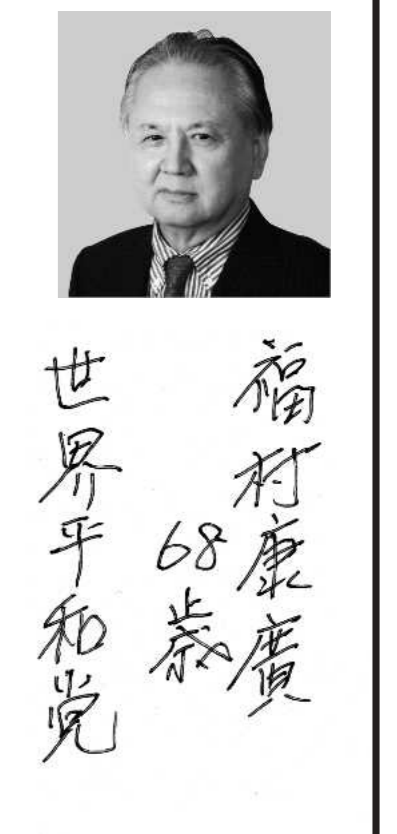 福村康廣
68歳
世界平和党